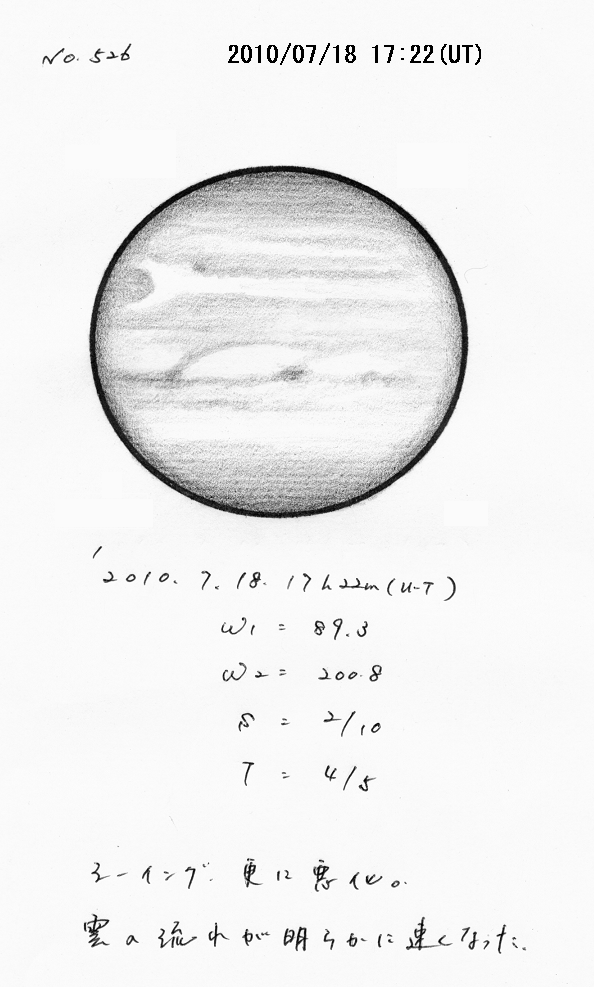 No. 526
2010/07/18 17:22(UT)
'2010. 7. 18. 17h22m(U.T)
ω1 = 89.3
ω2 = 200.8
S = 2/10
T = 4/5
シーイング、更に悪化。
雲の流れが明らかに速くなった。